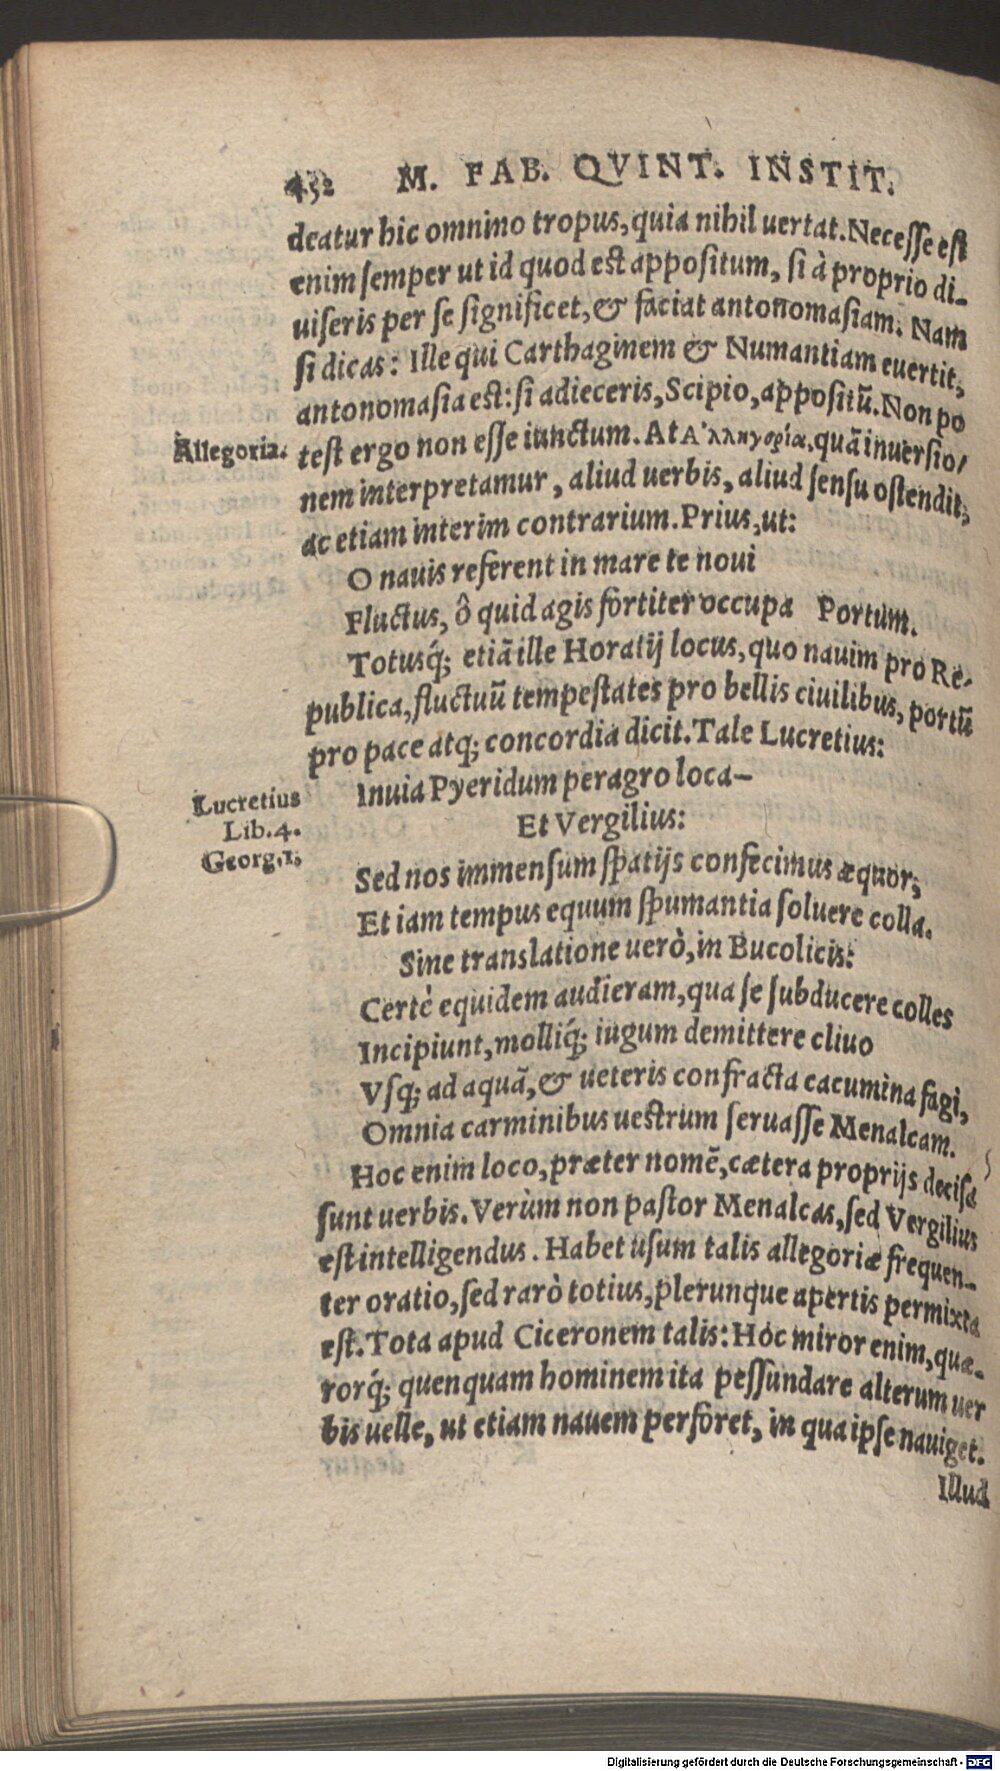 452 M. FAB. QVINT. INSTIT.
deatur hic omnino tropus, quia nihil uertat. Necesse est
enim semper ut id quod est appositum, si à proprio di-
uiseris per se significet, & faciat antonomasiam. Nam
si dicas: Ille qui Carthaginem & Numantiam euertit,
antonomasia est: si adieceris, Scipio, appositũ. Non po
Allegoria.
test ergo non esse iunctum. At Α᾽λληγορία, quã inuersio/
nem interpretamur, aliud uerbis, aliud sensu ostendit,
ac etiam interim contrarium. Prius, ut:
O nauis referent in mare te noui
Fluctus, ô quid agis fortiter occupa Portum.
Totusq́; etiã ille Horatij locus, quo nauim pro Re-
publica, fluctuũ tempestates pro bellis ciuilibus, portũ
pro pace atq; concordia dicit. Tale Lucretius:
Inuia Pyeridum peragro loca–
Lucretius
Lib. 4.
Et Vergilius:
Georg. 1.
Sed nos immensum spatijs confecimus æquor;
Et iam tempus equum spumantia soluere colla.
Sine translatione uerò, in Bucolicis:
Certè equidem audieram, qua se subducere colles
Incipiunt, molliq́; iugum demittere cliuo
Vsq; ad aquã, & ueteris confracta cacumina fagi,
Omnia carminibus uestrum seruasse Menalcam.
Hoc enim loco, præter nomẽ, cætera proprijs decisa
sunt uerbis. Verùm non pastor Menalcas, sed Vergilius
est intelligendus. Habet usum talis allegoriæ frequen-
ter oratio, sed rarò totius, plerunque apertis permixta
est. Tota apud Ciceronem talis: Hoc miror enim, quæ-
rorq́; quenquam hominem ita pessundare alterum uer
bis uelle, ut etiam nauem perforet, in qua ipse nauiget.
Illud
Digitalisierung gefördert durch die Deutsche Forschungsgemeinschaft - DFG